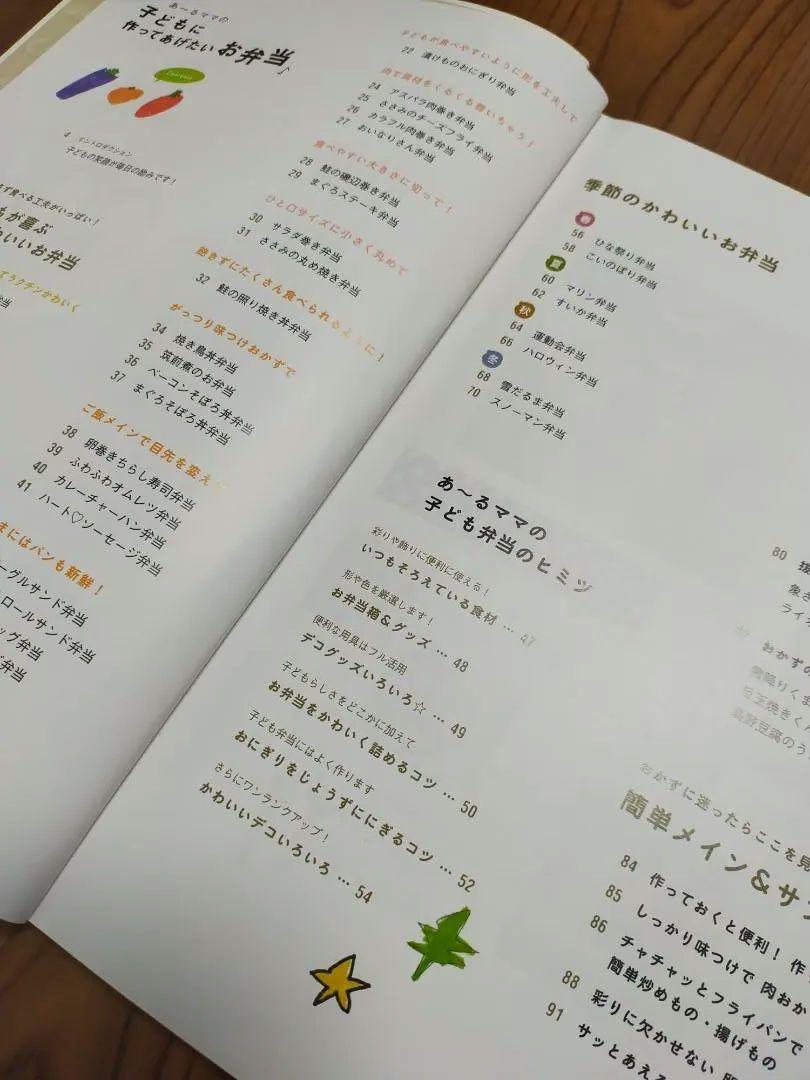 あ～るママの
子どもに
作ってあげたい お弁当♪
4 イントロダクション
子どもの笑顔が毎日の励みです！
ず食べる工夫がいっぱい！
が喜ぶ
わいいお弁当
てラクチンかわいく
弁当
子どもが食べやすいように形を工夫して
22 漬けものおにぎり弁当
肉で食材をくるくる巻いちゃう！
24 アスパラ肉巻き弁当
25 ささみのチーズフライ弁当
26 カラフル肉巻き弁当
27 おいなりさん弁当
食べやすい大きさに切って！
28 鮭の磯辺巻き弁当
29 まぐろステーキ弁当
ひと口サイズに小さく丸めて
30 サラダ巻き弁当
31 ささみの丸め焼き弁当
飽きずにたくさん食べられるように！
32 鮭の照り焼き丼弁当
がっつり味つけおかずで
34 焼き鳥丼弁当
35 筑前煮のお弁当
36 ベーコンそぼろ丼弁当
37 まぐろそぼろ丼弁当
ご飯メインで目先を変え
38 卵巻きちらし寿司弁当
39 ふわふわオムレツ弁当
40 カレーチャーハン弁当
41 ハート♡ソーセージ弁当
まにはパンも新鮮！
ーグルサンド弁当
ロールサンド弁当
ッグ弁当
弁当
季節のかわいいお弁当
春
56 ひな祭り弁当
58 こいのぼり弁当
夏
60 マリン弁当
62 すいか弁当
秋
64 運動会弁当
66 ハロウィン弁当
冬
68 雪だるま弁当
70 スノーマン弁当
あ～るママの
子ども弁当のヒミツ
彩りや飾りに便利に使える！
いつもそろえている食材 … 47
形や色を厳選します！
お弁当箱＆グッズ … 48
便利な用具はフル活用
デコグッズいろいろ☆ … 49
子どもらしさをどこかに加えて
お弁当をかわいく詰めるコツ … 50
子ども弁当にはよく作ります
おにぎりをじょうずににぎるコツ … 52
さらにワンランクアップ！
かわいいデコいろいろ … 54
80
象さ
ライオ
おかずの
おかずに迷ったらここを見
簡単メイン＆サ
84 作っておくと便利！ 作
85 しっかり味つけで 肉おか
86 チャチャッとフライパンで
簡単炒めもの・揚げもの
88 彩りに欠かせない
91 サッとあえる